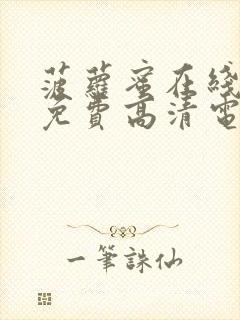 菠蘿蜜在綫
免費高清電
一筆誅仙